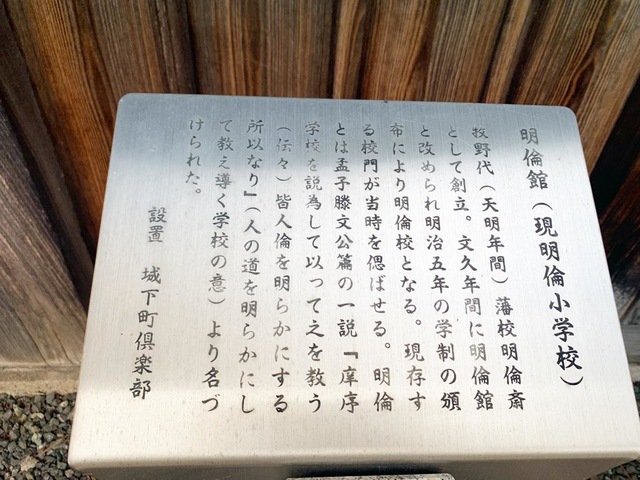 明倫館（現明倫小学校）
牧野代（天明年間）藩校明倫斎
として創立。文久年間に明倫館
と改められ明治五年の学制の頒
布により明倫校となる。現存す
る校門が当時を偲ばせる。明倫
とは孟子滕文公篇の一説『庠序
学校を説為して以って之を教う
（伝々）皆人倫を明らかにする
所以なり』（人の道を明らかにし
て教え導く学校の意）より名づ
けられた。
設置　城下町倶楽部